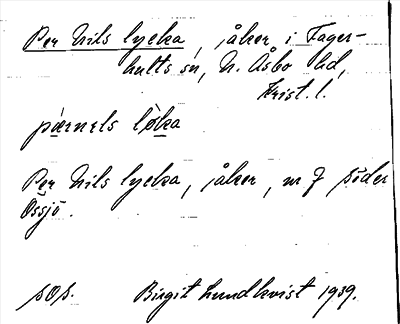 Per Nils lycka, åker i Fager-
hults sn, N. Åsbo hd,
Krist. l.
Per Nils lycka, åker, nr 7 söder
Össjö.
sOs. Birgit Lundkvist 1939.